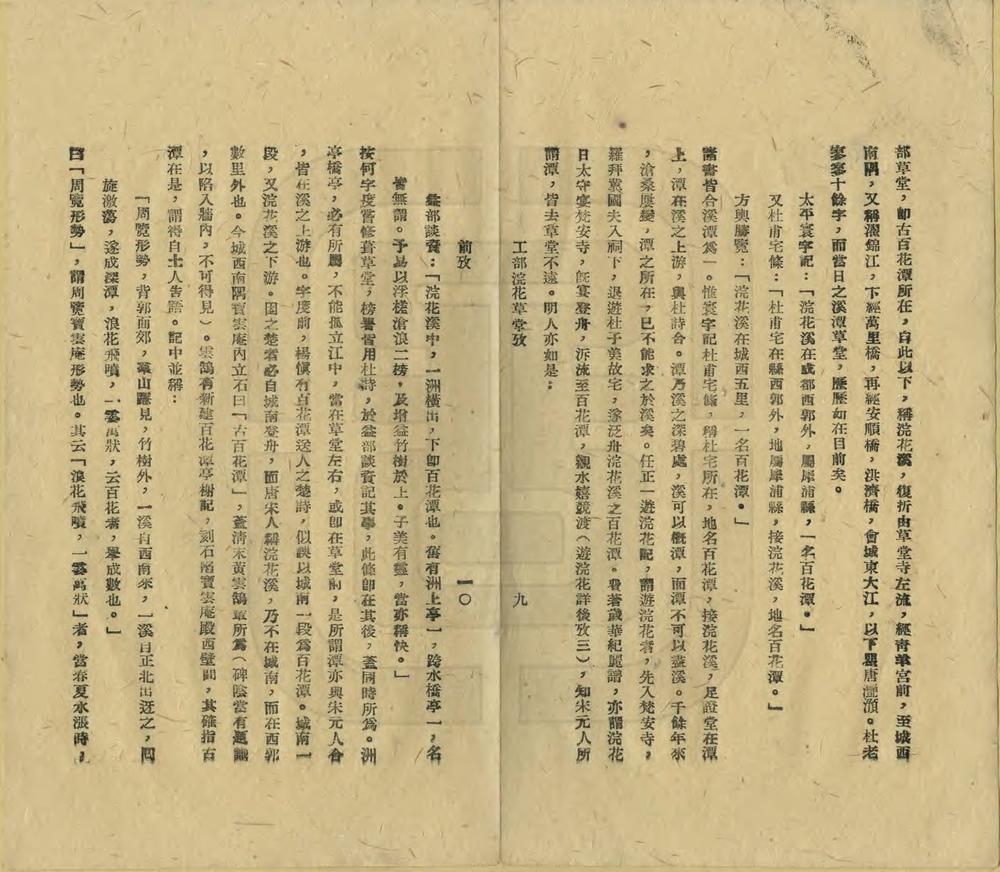 部草堂，卽古百花潭所在，自此以下，稱浣花溪，復折由草堂寺左流，經靑羊宮前，至城西
南隅，又稱濯錦江，下經萬里橋，再經安順橋，洪濟橋，會城東大江，以下瞿唐灩澦。杜老
寥寥十餘字，而當日之溪潭草堂，歷歷如在目前矣。
太平寰宇記：「浣花溪在成都西郭外，屬犀浦縣，一名百花潭。」
又杜甫宅條：「杜甫宅在縣西郭外，地屬犀浦縣，接浣花溪，地名百花潭。」
方輿勝覽：「浣花溪在城西五里，一名百花潭。」
諸書皆合溪潭爲一。惟寰宇記杜甫宅條，稱杜宅所在，地名百花潭，接浣花溪，足證堂在潭
上，潭在溪之上游，與杜詩合。潭乃溪之深碧處，溪可以概潭，而潭不可以盡溪。千餘年來
，滄桑屢變，潭之所在，已不能求之於溪矣。任正一遊浣花記，謂遊浣花者，先入梵安寺，
羅拜冀國夫人祠下，退遊杜子美故宅，遂泛舟浣花溪之百花潭。費著歲華紀麗譜，亦謂浣花
日太守宴梵安寺，旣宴登舟，泝流至百花潭，觀水嬉競渡（遊浣花詳後攷三），知宋元人所
謂潭，皆去草堂不遠。明人亦如是：
工部浣花草堂攷
九
前攷
一〇
益部談資：「浣花溪中，一洲橫出，下卽百花潭也。舊有洲上亭一，跨水橋亭一，名
皆無謂。予易以浮槎滄浪二榜，及增益竹樹於上。子美有靈，當亦稱快。」
按何宇度嘗修葺草堂，榜署皆用杜詩，於益部談資記其事，此條卽在其後，蓋同時所爲。洲
亭橋亭，必有所屬，不能孤立江中，當在草堂左右，或卽在草堂前，是所謂潭亦與宋元人合
，皆在溪之上游也。宇度前，楊愼有百花潭送人之楚詩，似誤以城南一段爲百花潭。城南一
段，又浣花溪之下游。因之楚者必自城南登舟，而唐宋人稱浣花溪，乃不在城南，而在西郭
數里外也。今城西南隅寶雲庵內立石曰「古百花潭」，蓋清末黃雲鵠輩所爲（碑陰當有題識
，以陷入牆內，不可得見）。雲鵠有新建百花潭亭榭記，刻石陷寶雲庵殿西壁間，其確指古
潭在是，謂得自土人告語。記中並稱：
「周覽形勢，背郭面郊，羣山躍見，竹樹外，一溪自西南來，一溪自正北出迓之，囘
旋激蕩，遂成深潭，浪花飛噴，一雲萬狀，云百花者，舉成數也。」
曰「周覽形勢」，謂周覽寶雲庵形勢也。其云「浪花飛噴，一雲萬狀」者，當春夏水漲時，